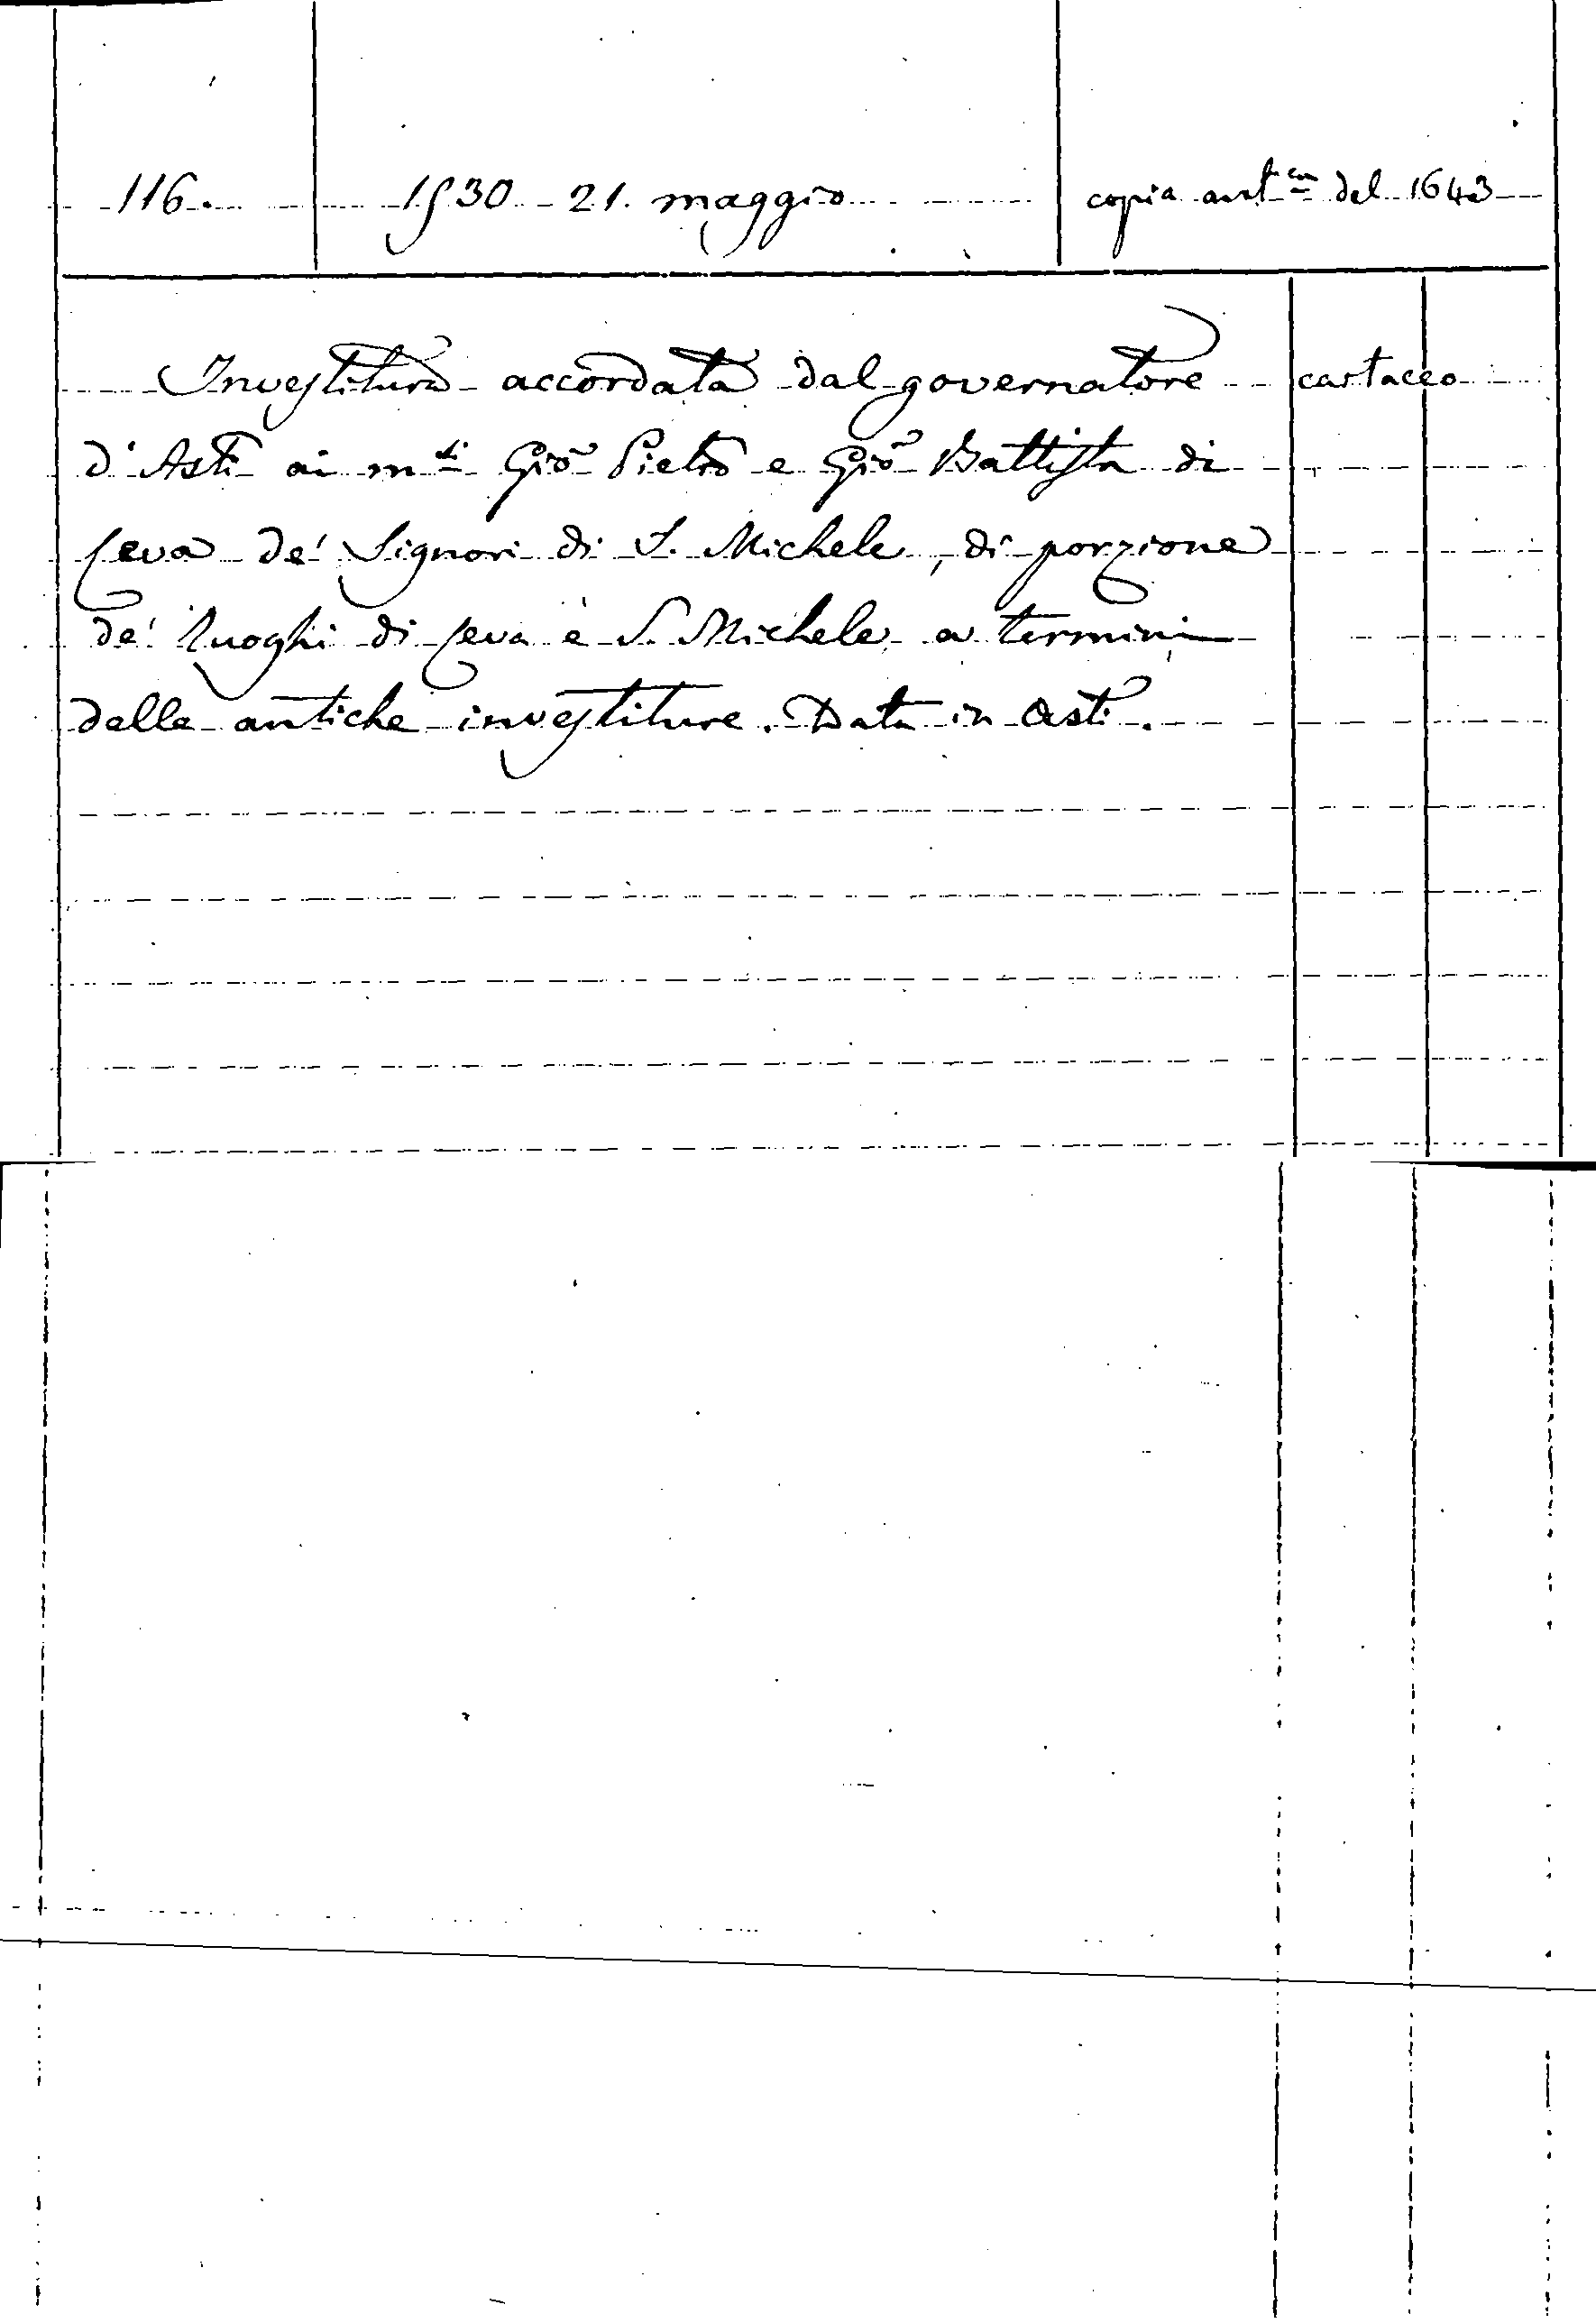 116. 1530 21. maggio copia aut.ca del 1643
Investitura accordata dal governatore cartaceo
d'Asti ai m.ti Gio Pietro e Gio Battista di
Ceva de' Signori di S. Michele, di porzione
de' luoghi di Ceva e S. Michele a termini
delle antiche investiture. Data in Asti.